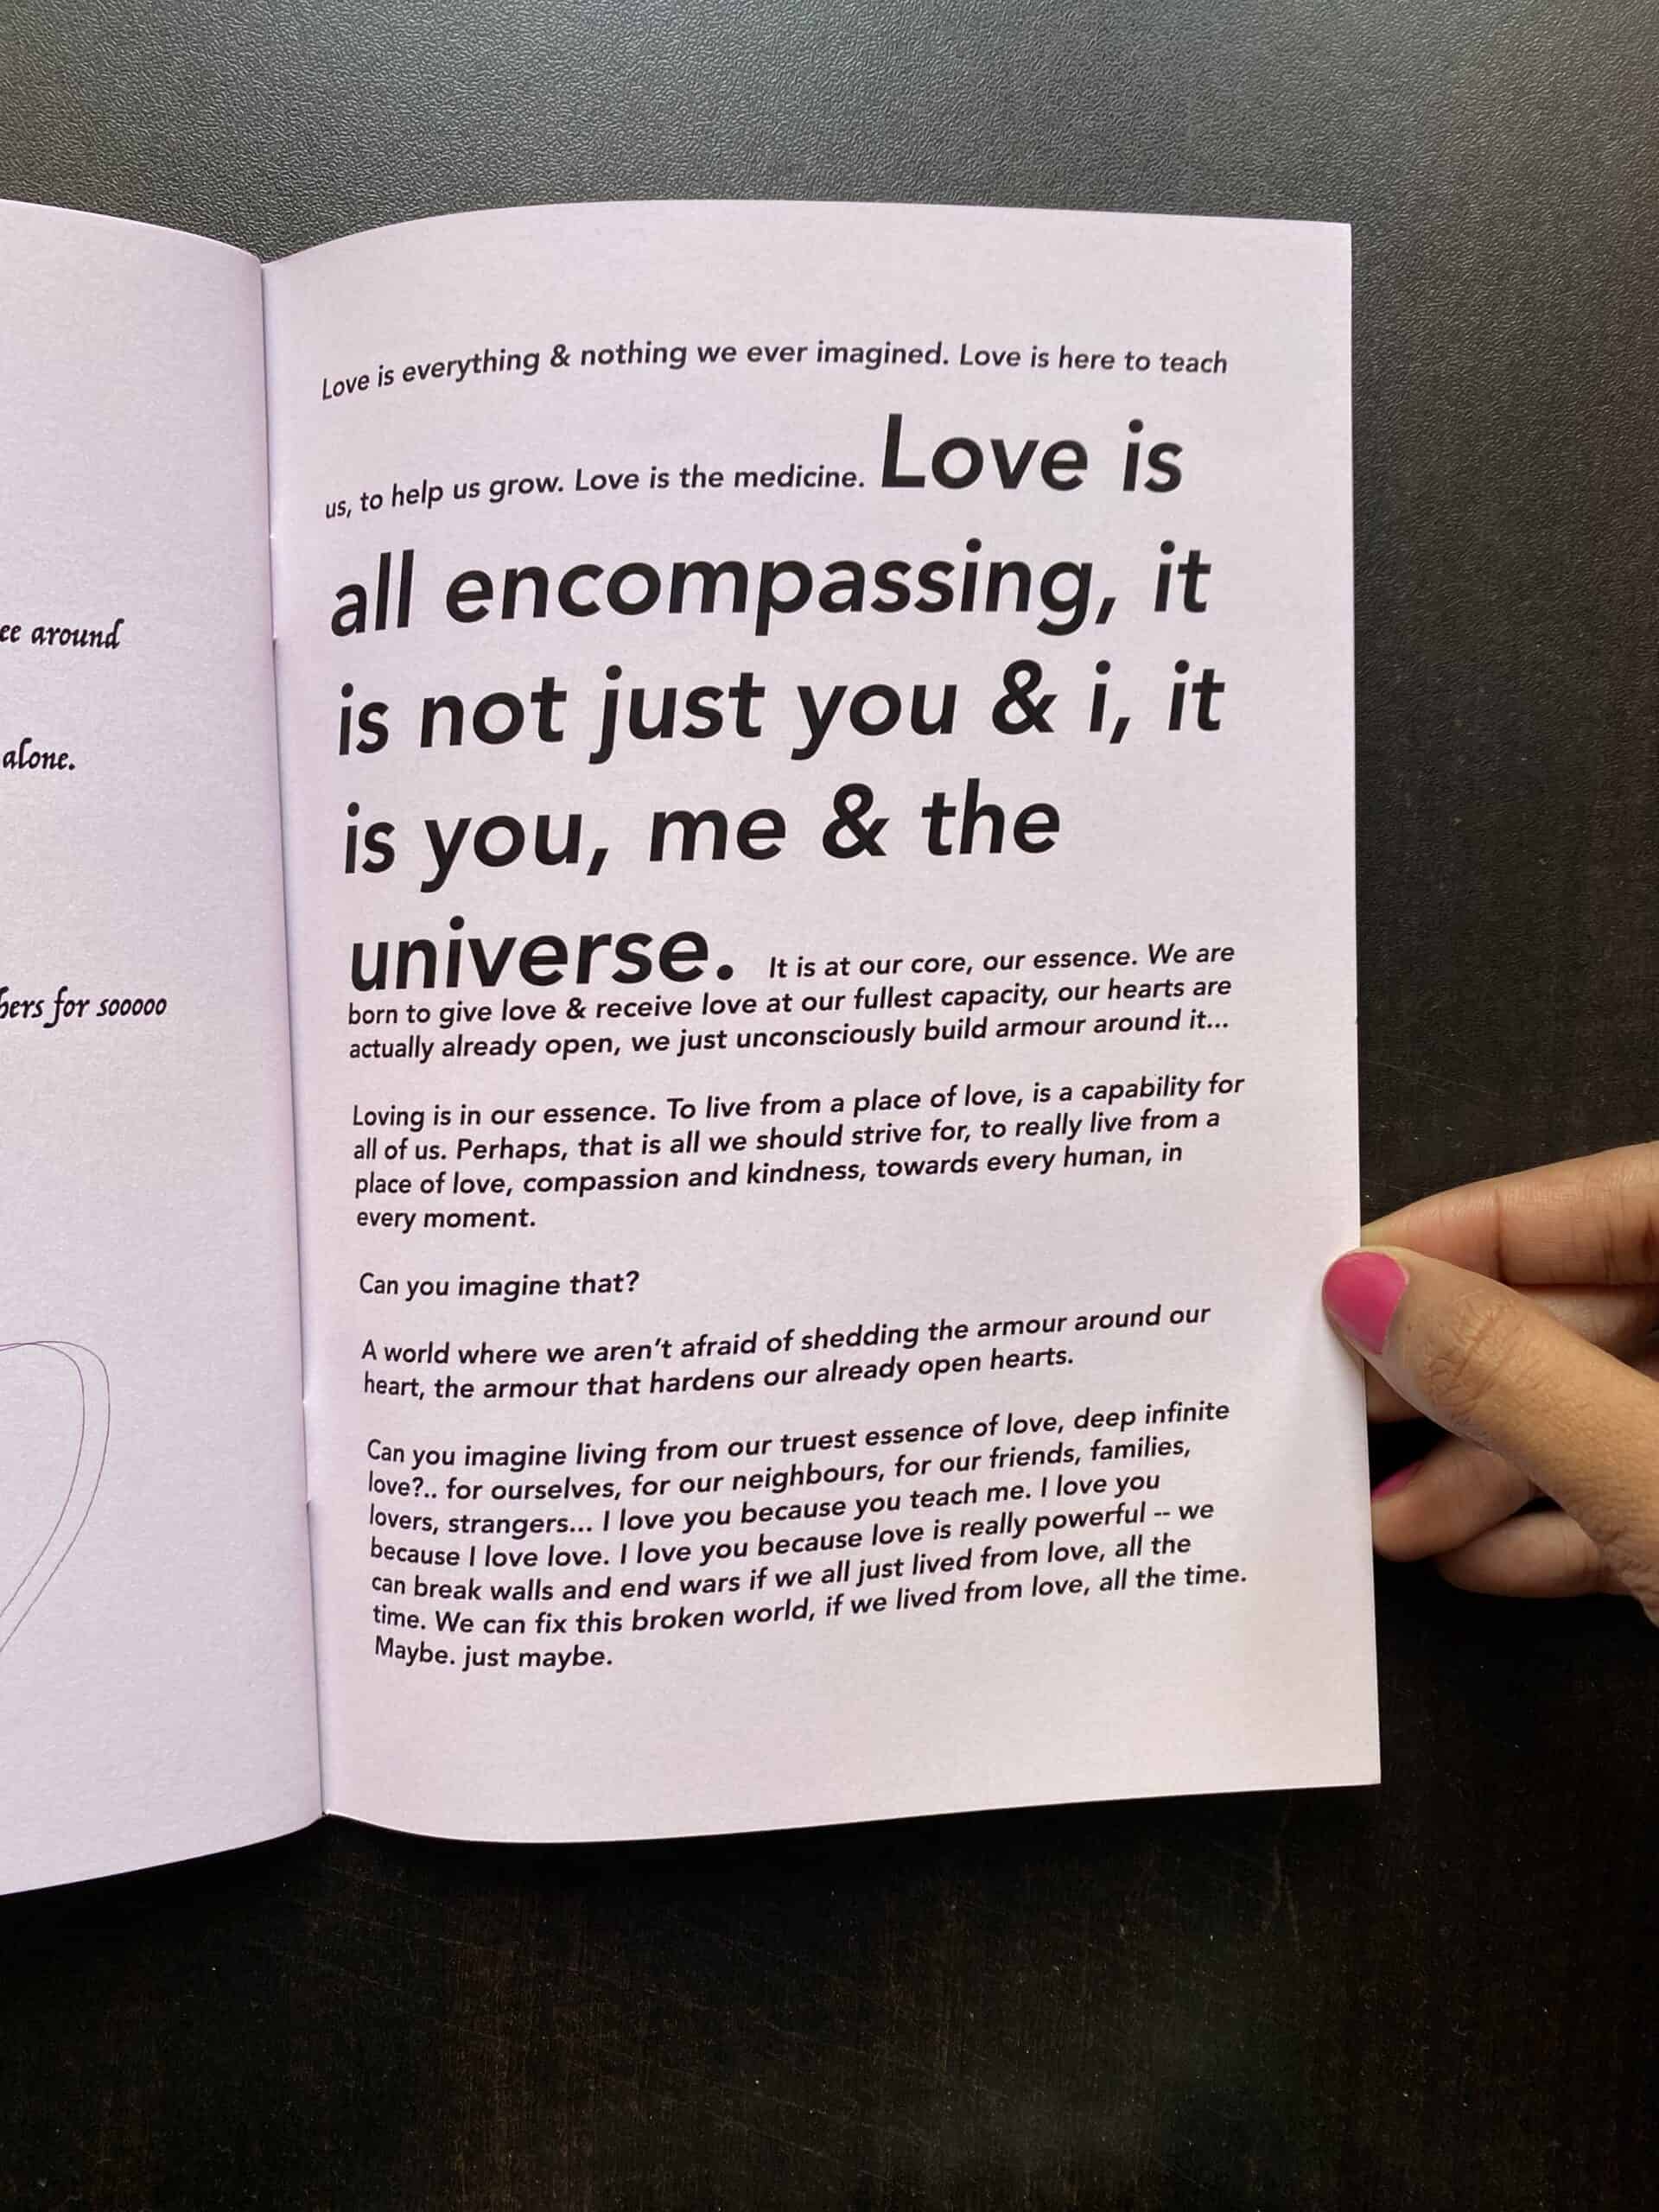 ee around
alone.
for sooooo
Love is everything & nothing we ever imagined. Love is here to teach
us, to help us grow. Love is the medicine. Love is
all encompassing, it
is not just you & i, it
is you, me & the
universe. It is at our core, our essence. We are
born to give love & receive love at our fullest capacity, our hearts are
actually already open, we just unconsciously build armour around it...
Loving is in our essence. To live from a place of love, is a capability for
all of us. Perhaps, that is all we should strive for, to really live from a
place of love, compassion and kindness, towards every human, in
every moment.
Can you imagine that?
A world where we aren't afraid of shedding the armour around our
heart, the armour that hardens our already open hearts.
Can you imagine living from our truest essence of love, deep infinite
love?.. for ourselves, for our neighbours, for our friends, families,
lovers, strangers... I love you because you teach me. I love you
because I love love. I love you because love is really powerful -- we
can break walls and end wars if we all just lived from love, all the
time. We can fix this broken world, if we lived from love, all the time.
Maybe. just maybe.